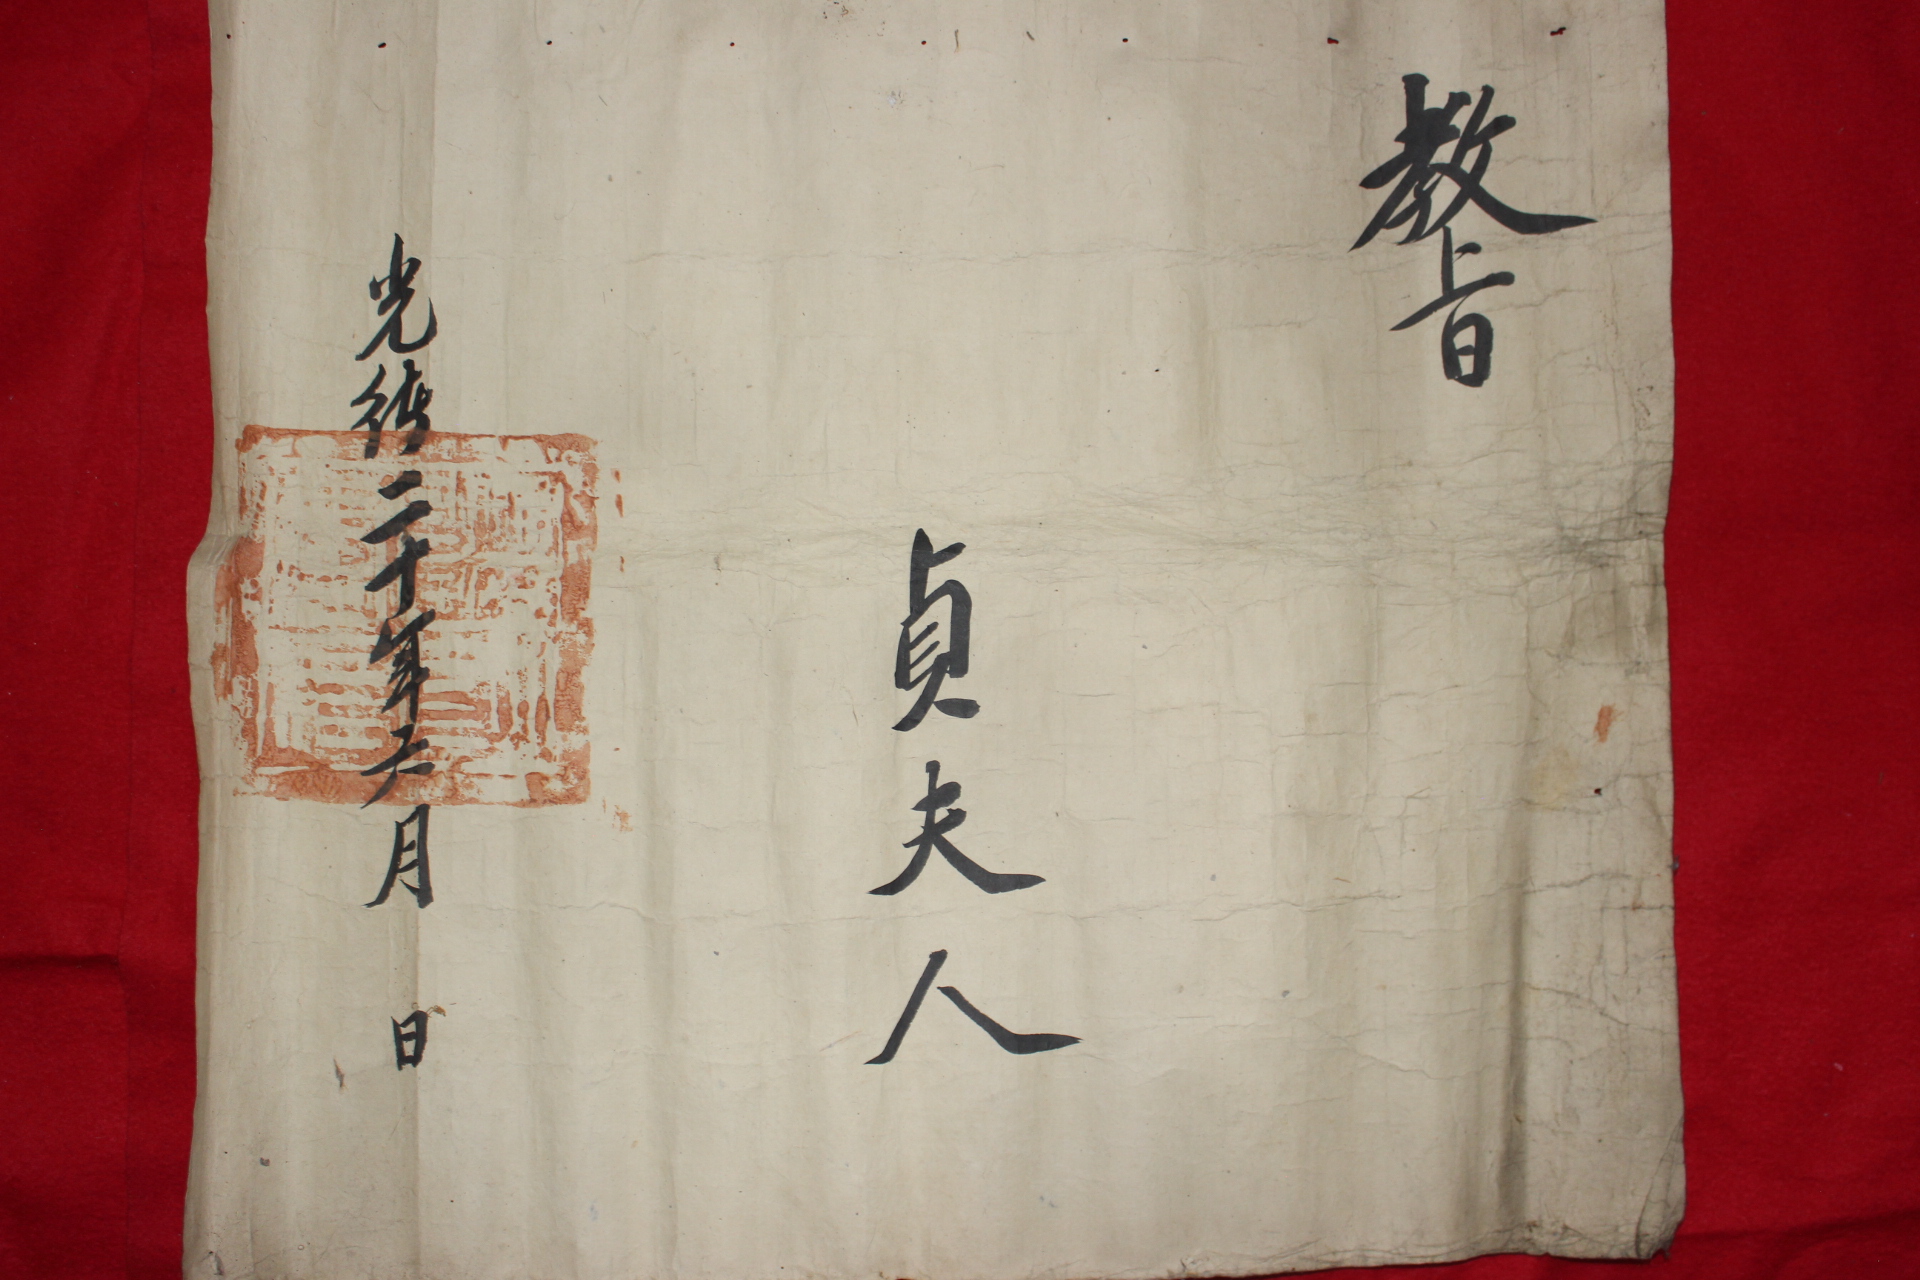 教旨
貞夫人
光緖二十年六月 日